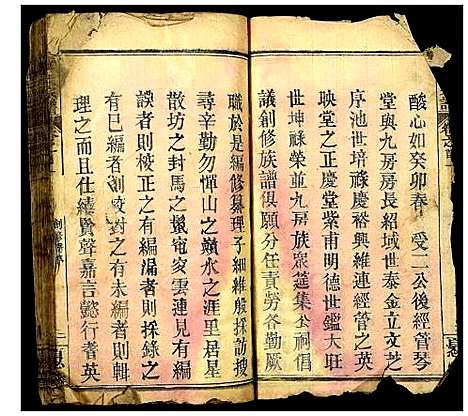 酸心如癸卯春　受二公後經管琴
堂與九房房長紹域世泰金立文芝
序池世培祿慶裕興維連經管之英
映堂之正慶堂紫甫明德世鑑大旺
世坤祿榮並九房族眾筵集公祠倡
議創修族譜俱願分任責勞各勤厥
職於是編修纂理子細維殷採訪搜
尋辛勤勿憚山之巔水之涯里居星
散坊之封馬之鬛穹窆雲連見有編
誤者則校正之有編漏者則採錄之
有已編者則校對之有未編者則輯
理之而且仕績賢聲嘉言懿行耆英
譜